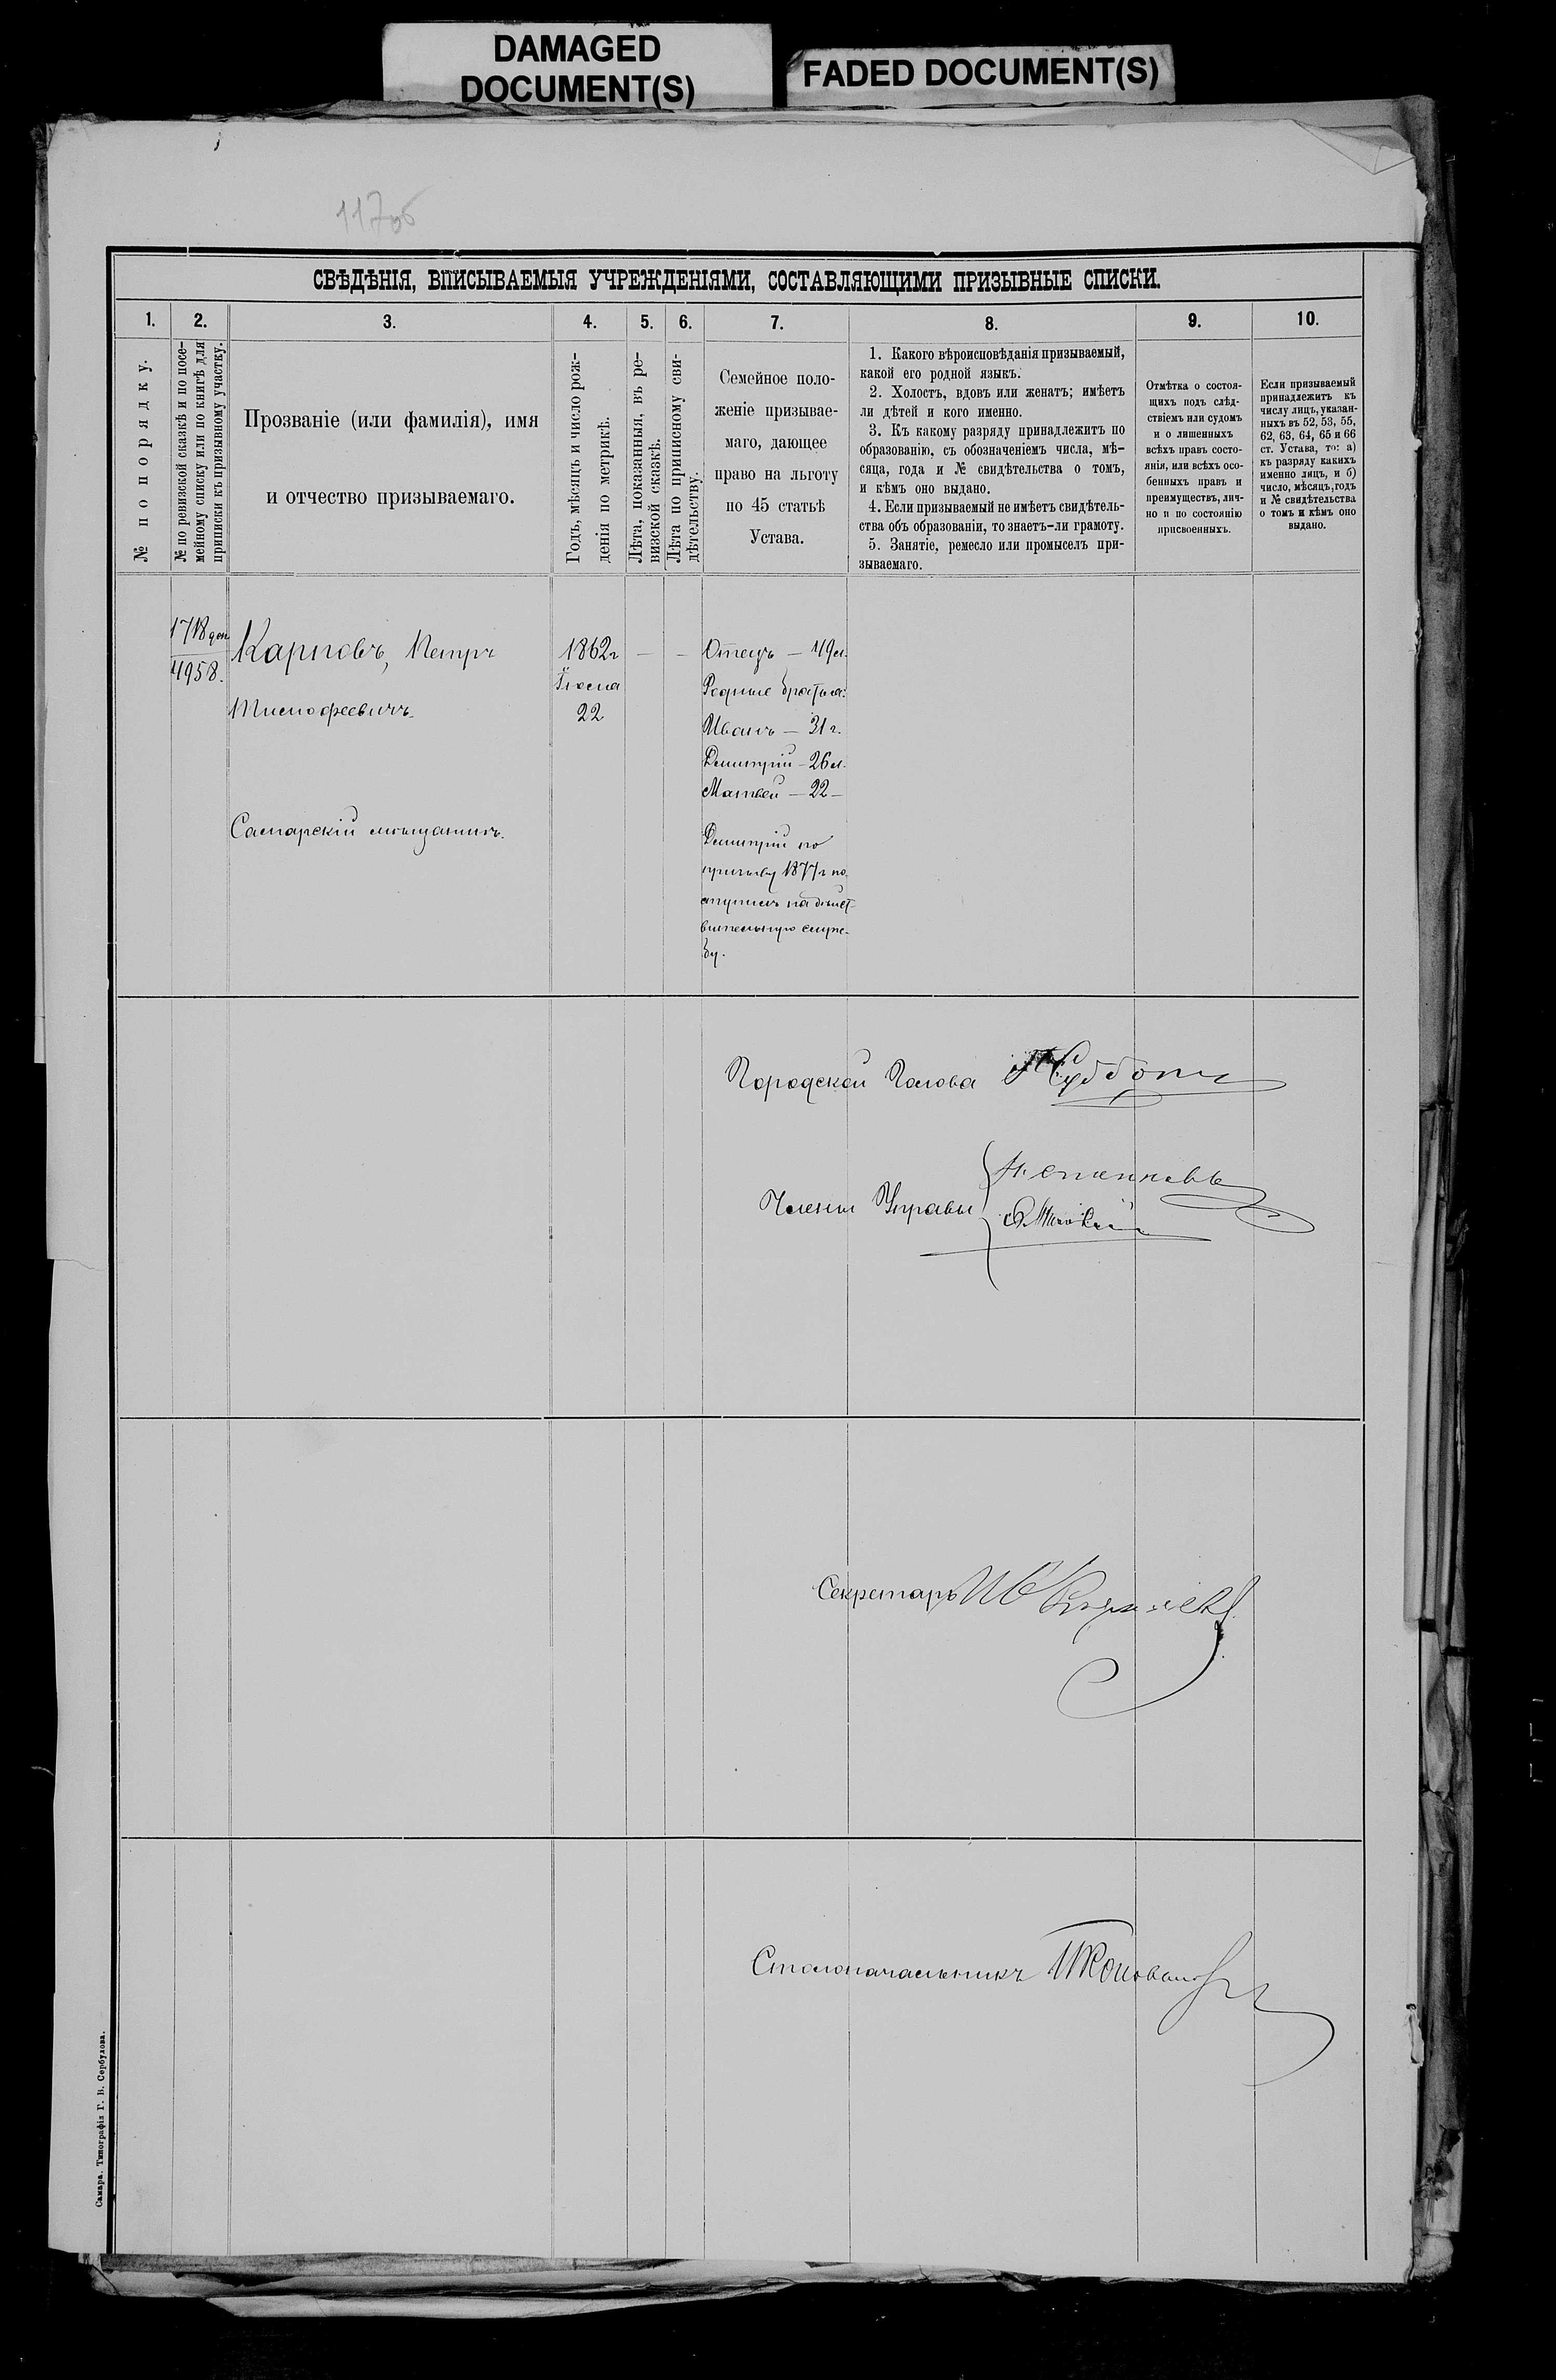 DAMAGED
DOCUMENT(S)
FADED DOCUMENT(S)
117об
СВѢДѢНІЯ, ВПИСЫВАЕМЫЯ УЧРЕЖДЕНІЯМИ, СОСТАВЛЯЮЩИМИ ПРИЗЫВНЫЕ СПИСКИ.
1.
2.
3.
4.
5.
6.
7.
8.
9.
10.
№ по порядку.
№ по ревизской сказкѣ и по посе-
мейному списку или по книгѣ для
приписки къ призывному участку.
Прозваніе (или фамилія), имя
и отчество призываемаго.
Годъ, мѣсяцъ и число рож-
денія по метрикѣ.
Лѣта, показанныя, въ ре-
визской сказкѣ.
Лѣта по приписному сви-
дѣтельству.
Семейное поло-
женіе призывае-
маго, дающее
право на льготу
по 45 статьѣ
Устава.
1. Какого вѣроисповѣданія призываемый,
какой его родной языкъ.
2. Холостъ, вдовъ или женатъ; имѣетъ
ли дѣтей и кого именно.
3. Къ какому разряду принадлежитъ по
образованію, съ обозначеніемъ числа, мѣ-
сяца, года и № свидѣтельства о томъ,
и кѣмъ оно выдано.
4. Если призываемый не имѣетъ свидѣтель-
ства объ образованіи, то знаетъ-ли грамоту.
5. Занятіе, ремесло или промыселъ при-
зываемаго.
Отмѣтка о состоя-
щихъ подъ слѣд-
ствіемъ или судомъ
и о лишенныхъ
всѣхъ правъ состо-
янія, или всѣхъ осо-
бенныхъ правъ и
преимуществъ, лич-
но и по состоянію
присвоенныхъ.
Если призываемый
принадлежитъ къ
числу лицъ, указан-
ныхъ въ 52, 53, 55,
62, 63, 64, 65 и 66
ст. Устава, то: а)
къ разряду какихъ
именно лицъ, и б)
число, мѣсяцъ, годъ
и № свидѣтельства
о томъ и кѣмъ оно
выдано.
1718 доп
4958.
Карповъ, Петръ
Тимофеевичъ.
Самарскій мѣщанинъ.
1862 г
Іюня
22
—
—
Отецъ — 49 л.
Родные братья:
Иванъ — 31 г.
Димитрій — 26 л.
Матвей — 22 —
Димитрій по
призыву 1877 г по-
ступилъ на дѣйст-
вительную служ-
бу.
Городской Голова П Субботи
Члены Управы
Секретарь
Столоначальникъ И Коновалов
Самара. Типографія Г. В. Сербулова.